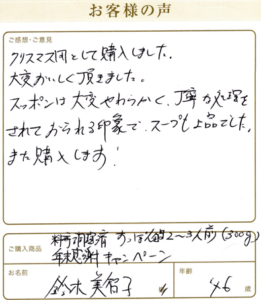 お客様の声
ご感想・ご意見
クリスマス用として購入しました。
大変おいしく頂きました。
スッポンは大変やわらかく、丁寧な処理を
されておられる印象で、スープも上品でした。
また購入します!
ご購入商品
料理済 すっぽん鍋2〜3人前(300g)
年末感謝キャンペーン
お名前
鈴木美智子
年齢
46 歳